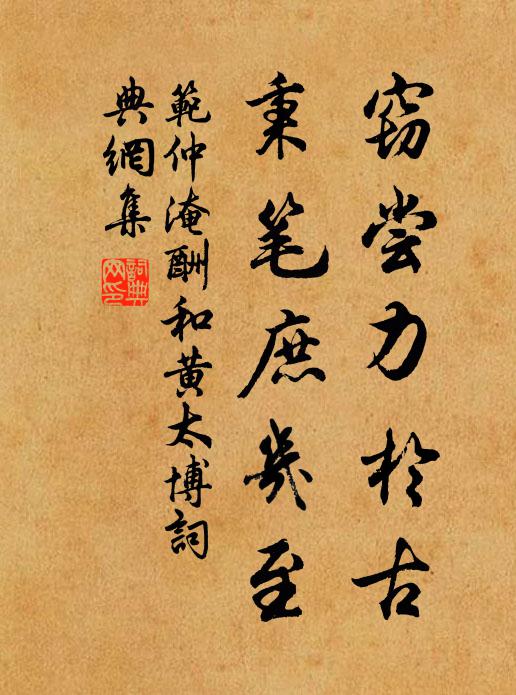 窃尝力於古
秉笔庶幾至
範仲淹酬和黄太博詞
典網集
詞典网印